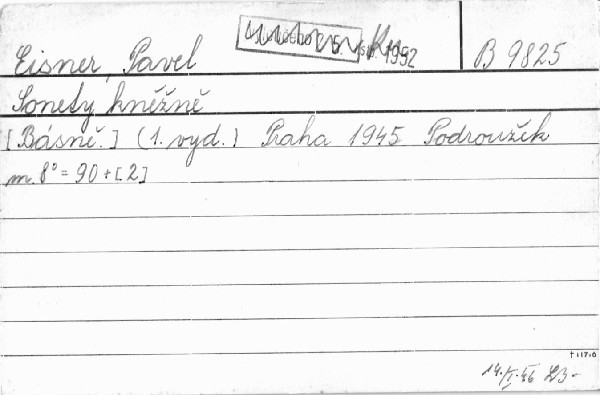 Eisner, Pavel
1952
B 9825
Sonety kněžně
[Básně.] (1. vyd.) Praha 1945 Podroužek
m. 8° = 90 + [2]
14.I.46